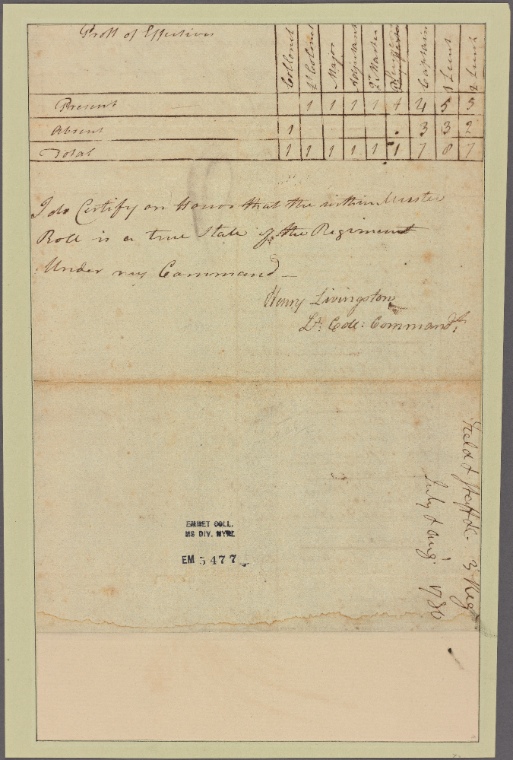 Proff of Effectives
Collonel Lt Colonel Major Adjutant Qr Master Captain 1 Lieut 2 Lieut
Present 1 1 1 1 1 4 5 5
Absent 1 3 3 2
Total 1 1 1 1 1 1 7 8 7
I do Certify on Honor that the within Muster
Roll is a true State of the Regiment
Under my Command —
Henry Livingston
Lt. Colo: Commandt.
Field & Staff &c 3 Reg
July & Aug. 1780
EMMET COLL.
MS DIV. NYPL
EM 5477